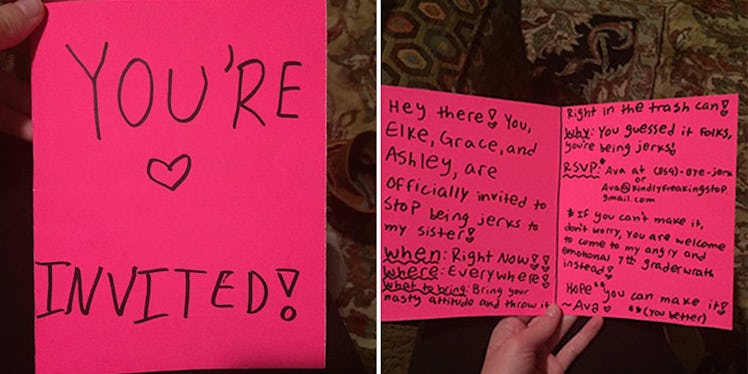 YOU'RE
♡
INVITED!
Hey there! You,
Elke, Grace, and
Ashley, are
officially invited to
stop being jerks to
my sister!
When: Right Now!!
Where: Everywhere!
What to bring: Bring your
nasty attitude and throw it
Right in the trash can!
Why: You guessed it folks,
you're being jerks!
RSVP:* Ava at (859)-Bye-jerk
or
Ava@kindlyfreakingstop
gmail.com
*If you can't make it,
don't worry, you are welcome
to come to my angry and
emotional 7th grader wrath
instead!
Hope** you can make it!
~Ava ♡ **(You better)